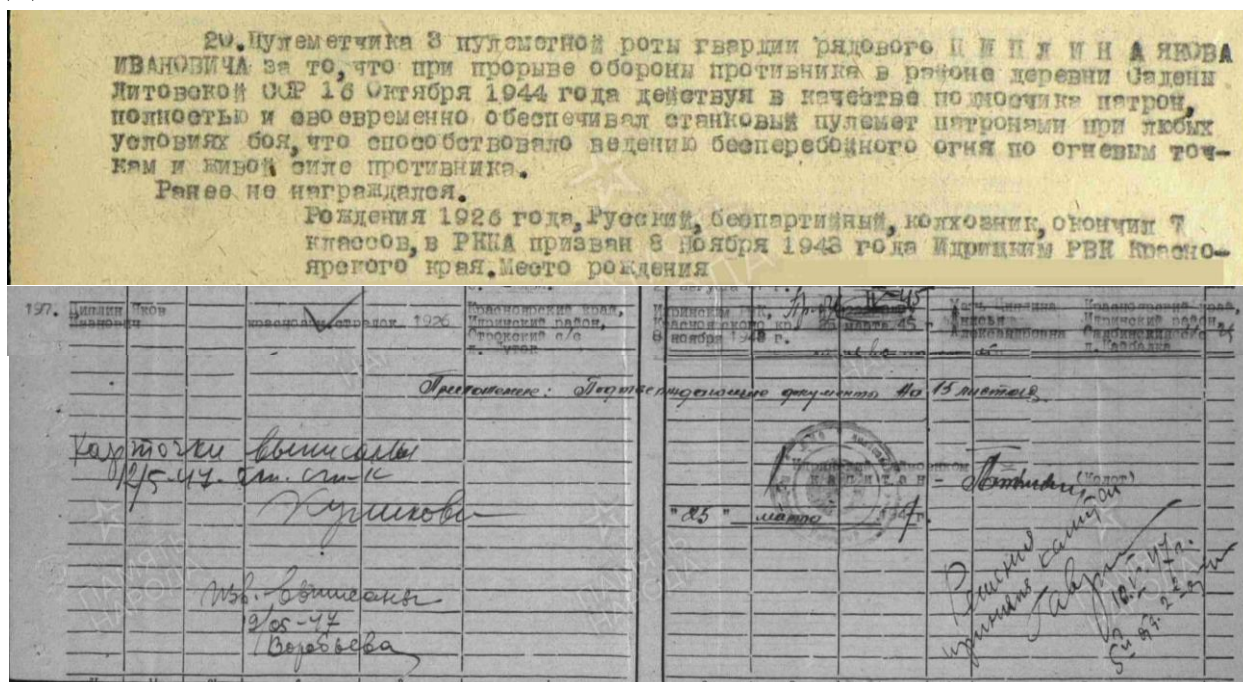 20.Пулеметчика 3 пулеметной роты гвардии рядового Ц И П Л И Н А ЯКОВА
ИВАНОВИЧА за то, что при прорыве обороны противника в районе деревни Садены
Литовской ССР 16 Октября 1944 года действуя в качестве подносчика патрон,
полностью и своевременно обеспечивал станковый пулемет патронами при любых
условиях боя, что способствовало ведению бесперебойного огня по огневым точ-
кам и живой силе противника.
Ранее не награждался.
Рождения 1926 года, Русский, беспартийный, колхозник, окончил 7
классов, в РККА призван 8 Ноября 1943 года Идрицким РВК Красно-
ярского края. Место рождения
197. Циплин Яков
Иванович
красноарм. стрелок 1926
Красноярский край,
Идринский район,
с/с
Идринским РВК,
Красноярского кр.
8 ноября 1943 г.
25 марта 45 г.
Мать Циплина
Александровна
Красноярский край,
Идринский район,
Приложение: Подтверждающие документы на 15 листах.
Карточки выписаны
12/5-47.
"25" марта
капитан -
Изв. выписаны
9/05-47
Воробьева
Решения
ПАМЯТЬ
НАРОДА